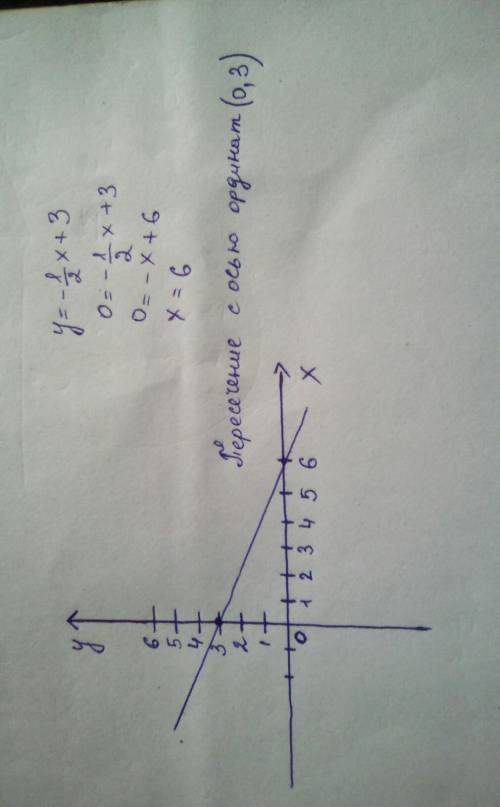 y = -1/2 x + 3
0 = -1/2 x + 3
0 = -x + 6
x = 6
Пересечение с осью ординат (0, 3)
y
6
5
4
3
2
1
0 1 2 3 4 5 6 x